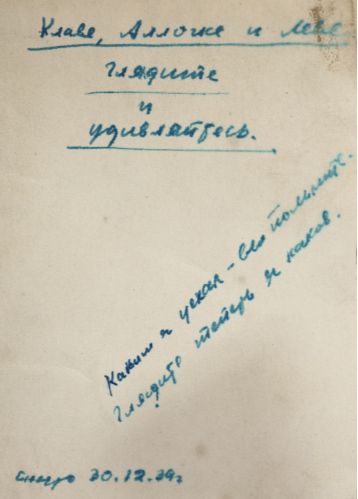 Клаве, Аллочке и Леве
Глядите
и
удивляйтесь.
Каким я уехал – Вы помните.
Глядите теперь я каков.
30.12.39г